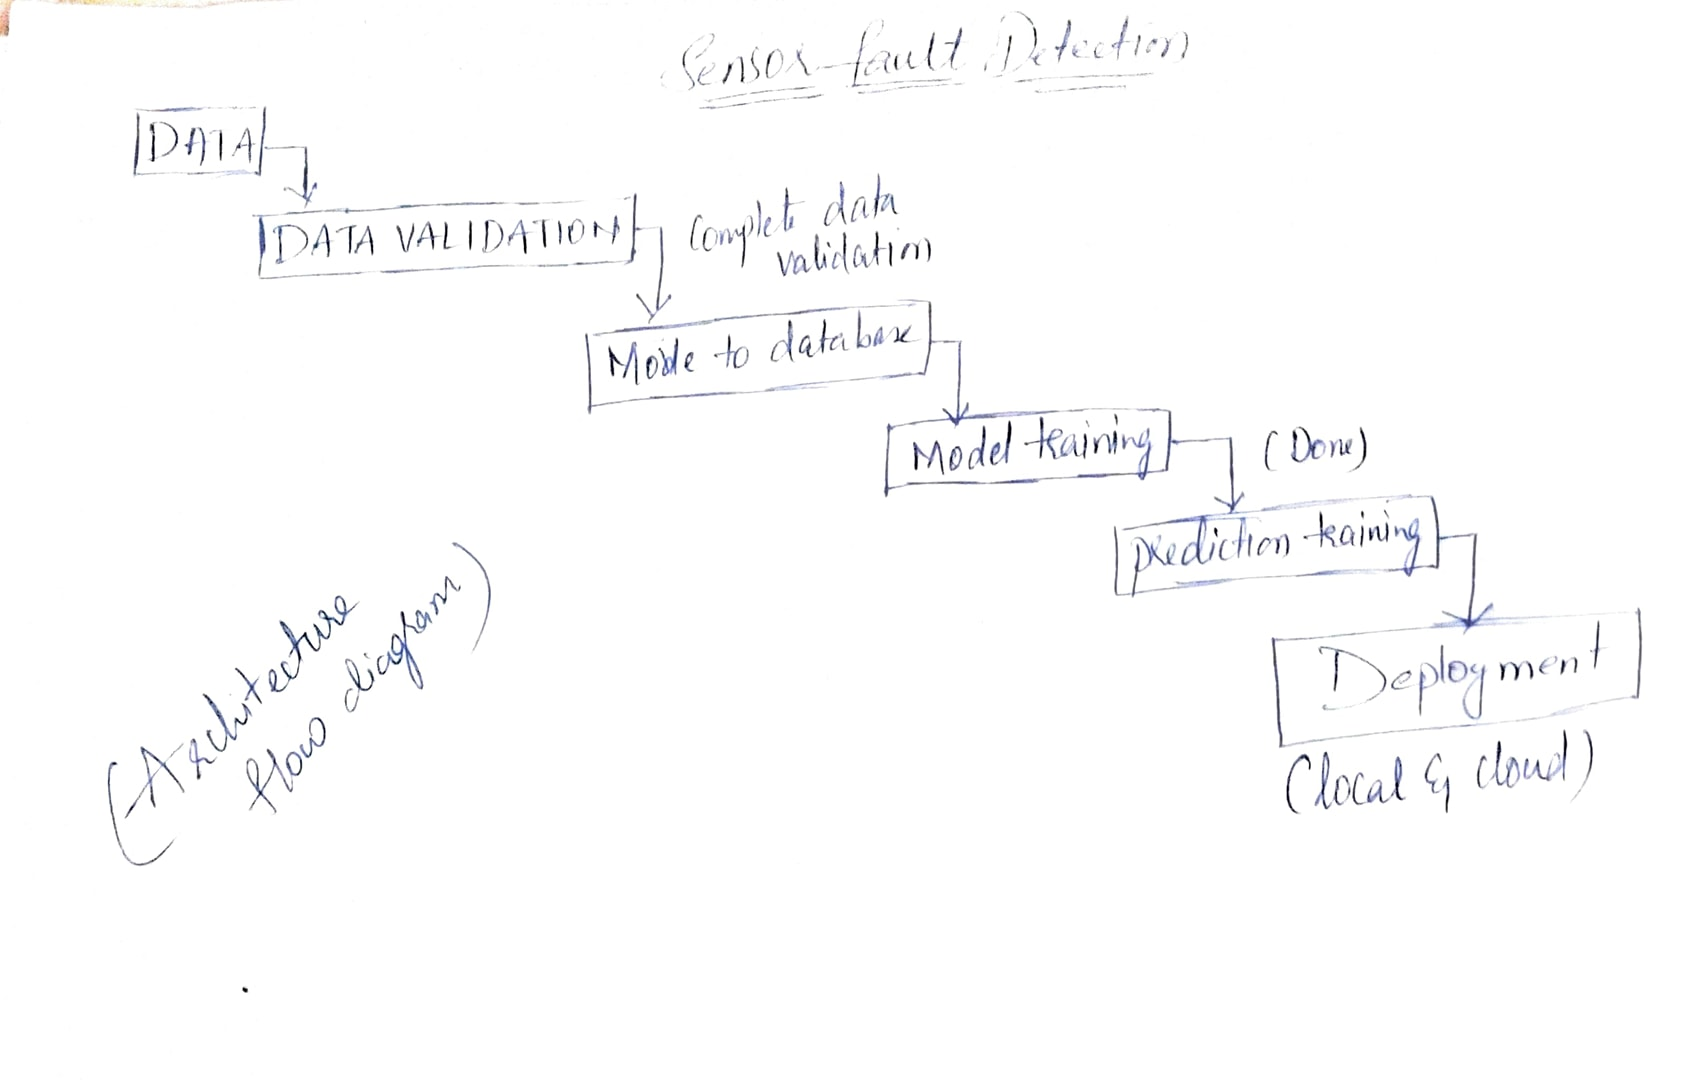 Sensor fault Detection
DATA
DATA VALIDATION
Complete data
validation
Move to database
Model training
(Done)
prediction training
Deployment
(local & cloud)
(Architecture
flow diagram)